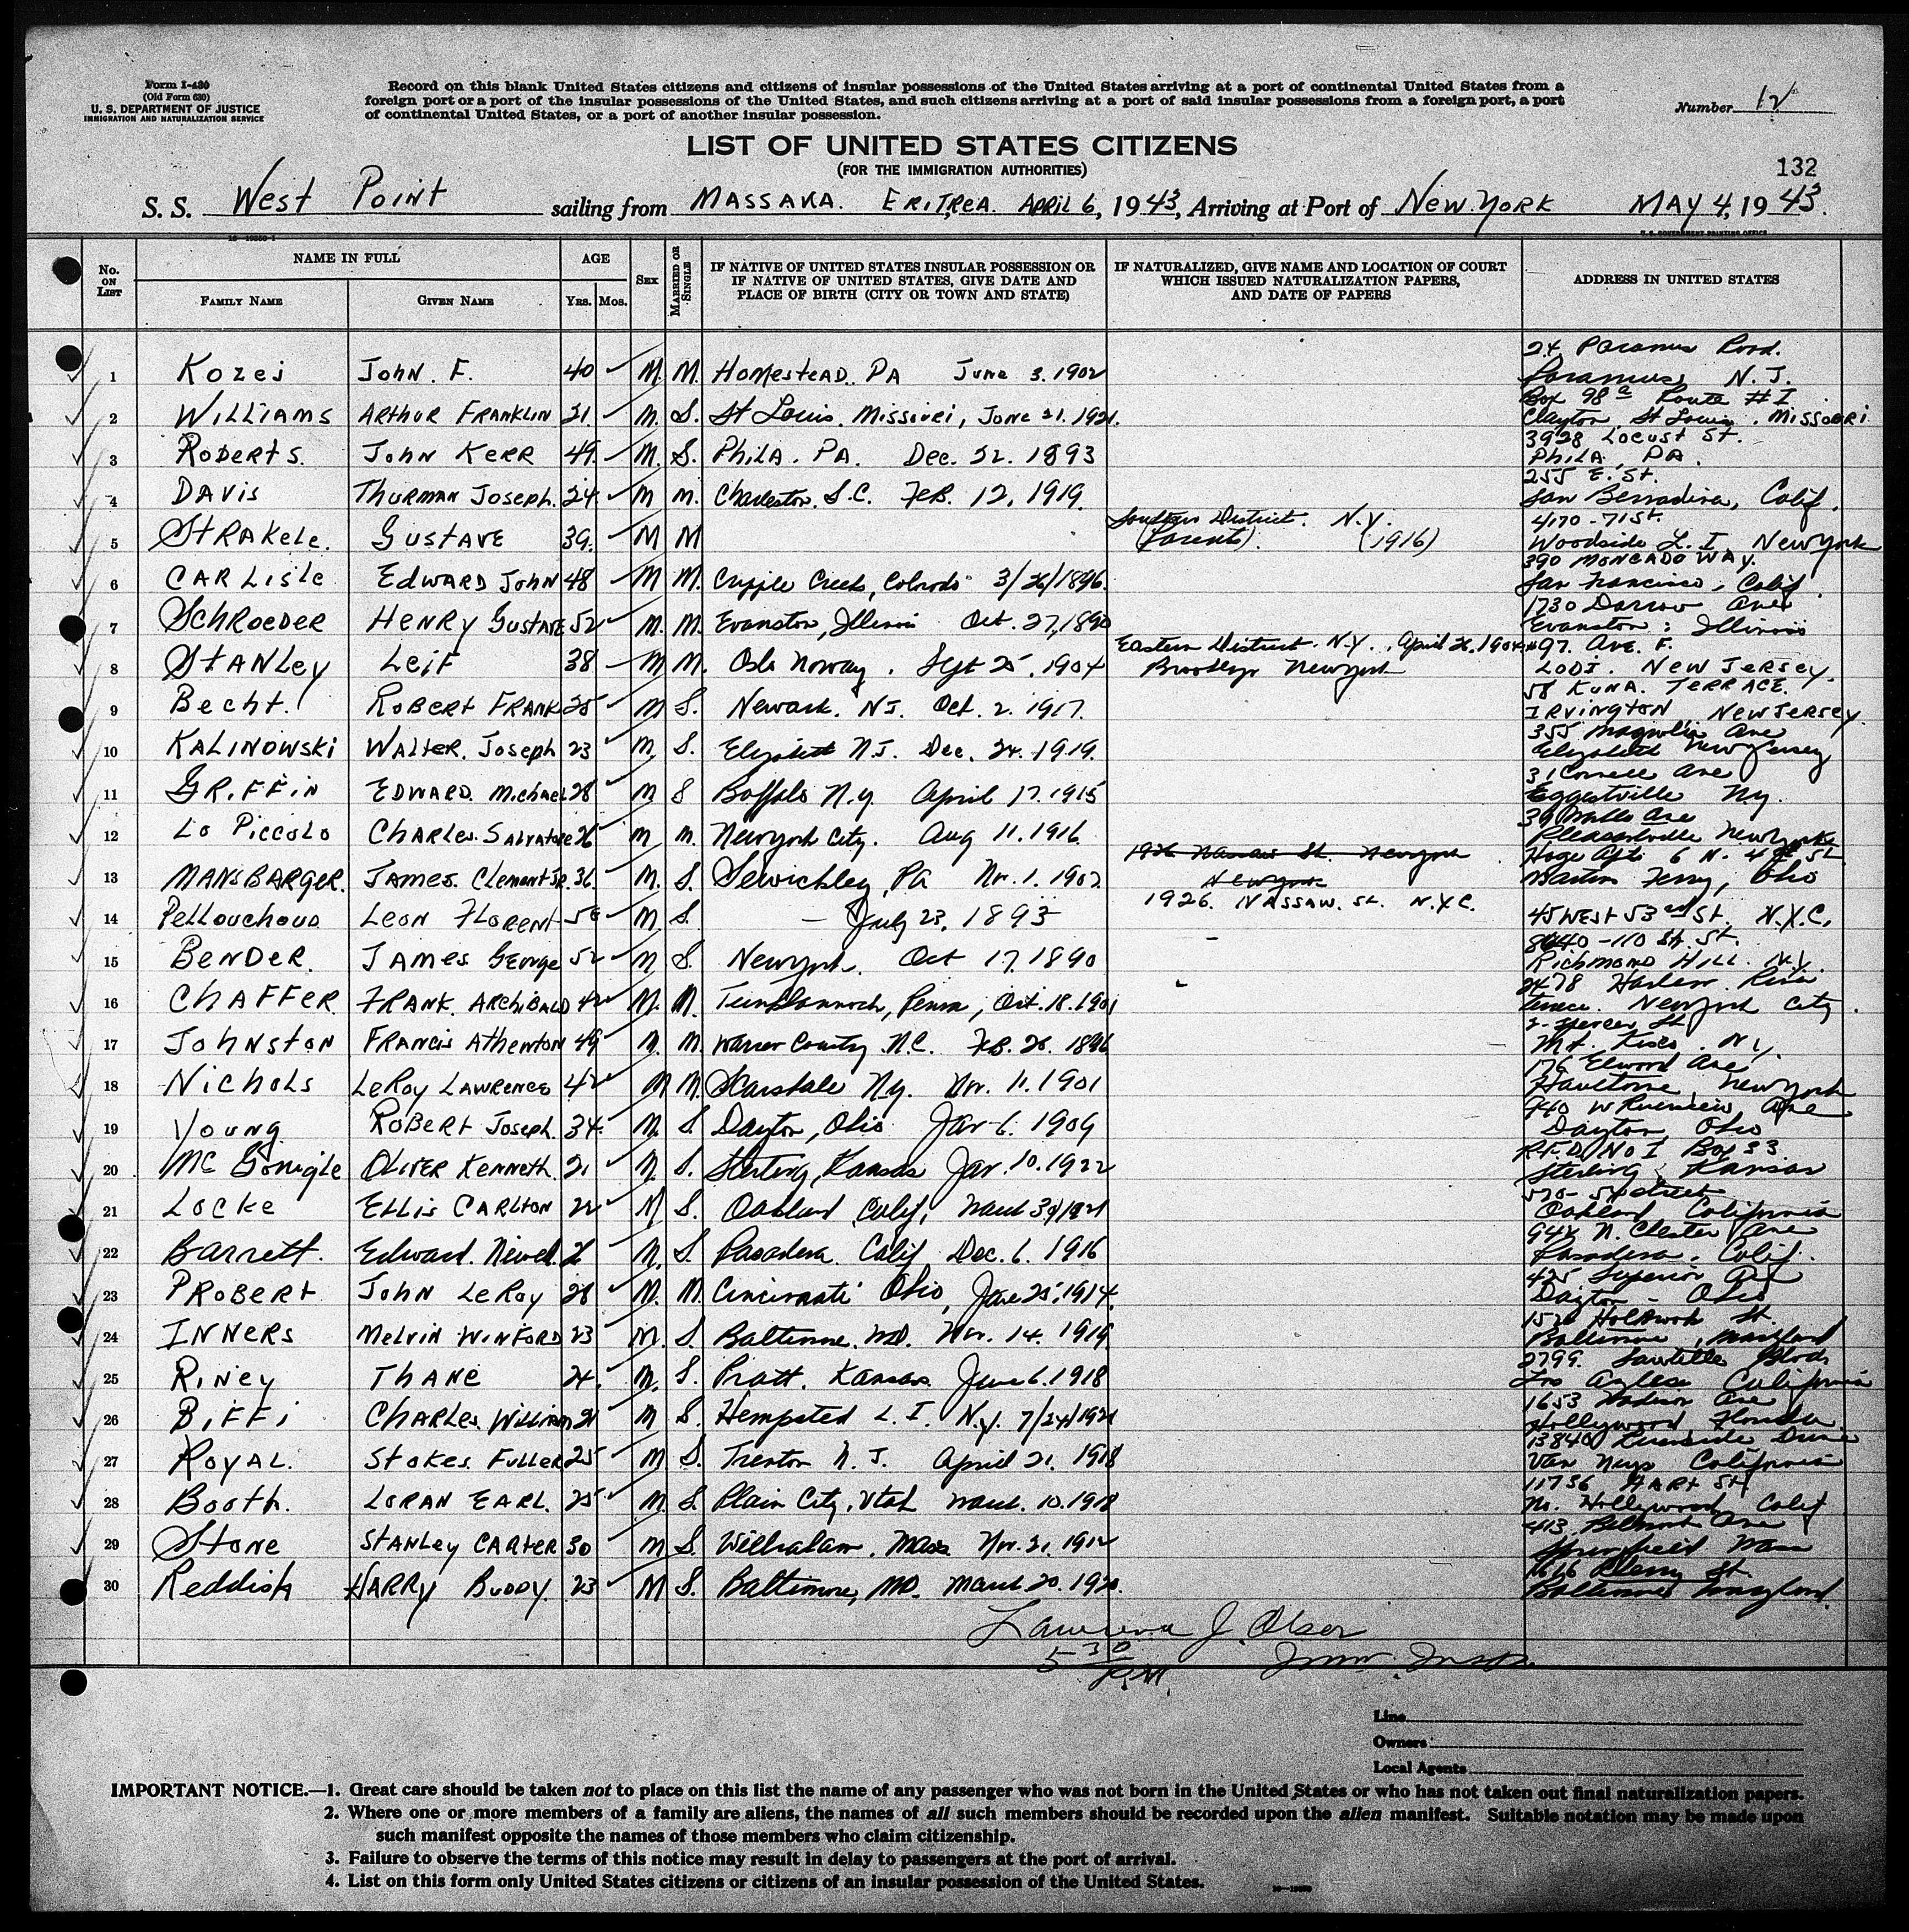 Form I-430
(Old Form 630)
U. S. DEPARTMENT OF JUSTICE
IMMIGRATION AND NATURALIZATION SERVICE
Record on this blank United States citizens and citizens of insular possessions of the United States arriving at a port of continental United States from a
foreign port or a port of the insular possessions of the United States, and such citizens arriving at a port of said insular possessions from a foreign port, a port
of continental United States, or a port of another insular possession.
Number 12
LIST OF UNITED STATES CITIZENS
(FOR THE IMMIGRATION AUTHORITIES)
132
S. S. West Point sailing from MASSAKA. ERITREA. APRIL 6, 1943, Arriving at Port of New York MAY 4, 1943.
U. S. GOVERNMENT PRINTING OFFICE
No. ON LIST
NAME IN FULL
FAMILY NAME
GIVEN NAME
AGE
YRS. MOS.
SEX
MARRIED OR SINGLE
IF NATIVE OF UNITED STATES INSULAR POSSESSION OR
IF NATIVE OF UNITED STATES, GIVE DATE AND
PLACE OF BIRTH (CITY OR TOWN AND STATE)
IF NATURALIZED, GIVE NAME AND LOCATION OF COURT
WHICH ISSUED NATURALIZATION PAPERS,
AND DATE OF PAPERS
ADDRESS IN UNITED STATES
1 Kozej John. F. 40 M. M. Homestead. PA June 3. 1902 24 Paramus Road. Paramus, N. J.
2 Williams Arthur Franklin 21. M. S. St Louis. Missouri, June 21. 1921. Box 98a Route # 1 Clayton, St Louis. Missouri
3 Roberts. John Kerr 49. M. S. Phila. PA. Dec. 22. 1893 3928 Locust St. Phila. PA.
4 Davis Thurman Joseph. 24 M M. Charleston. S.C. Feb. 12, 1919. 255 E. St. San Bernadino, Calif.
5 Strakele. Gustave 39. M M Southern District. N.Y. (Parents). (1916) 4170-71 St. Woodside L. I. New York
6 Carlisle Edward John 48 M M. Cripple Creek, Colorado 3/26/1896. 390 Moncado Way. San Francisco, Calif
7 Schroeder Henry Gustave 52 M. M. Evanston, Illinois Oct. 27, 1890 1730 Darrow Ave Evanston : Illinois
8 Stanley Leif 38 M M. Oslo Norway. Sept 25, 1904 Eastern District. N.Y. April 26. Brooklyn New York 97. Ave. F. Lodi. New Jersey.
9 Becht. Robert Frank 25 M S. Newark. N.J. Oct. 2. 1917. 58 Kuna. Terrace. Irvington New Jersey.
10 Kalinowski Walter. Joseph 23 M. S. Elizabeth N.J. Dec. 24. 1919. 355 Magnolia Ave Elizabeth New Jersey
11 Griffin Edward. Michael 28 M S Buffalo N.Y. April 17. 1915 31 Cornell Ave Eggertsville N.Y.
12 Lo Piccolo Charles. Salvatore 26 M M. New York City. Aug 11. 1916. Pleasantville New York
13 Mansbarger. James. Clement Jr. 36. M. S. Sewickley, Pa Nov. 1. 1902 Martins Ferry, Ohio
14 Pellouchoud Leon Florent M S. - July 23, 1893 1926. Nassaw. St. N.Y.C. 45 West 53rd St. N.Y.C.
15 Bender. James George 52 M S. New York. Oct 17, 1890 -110 St. Richmond Hill. N.Y.
16 Chaffer Frank. Archibald 42 M. M. Tunkhannock, Penna, Oct. 18. 1901 2478 Harlem River Terrace. New York City.
17 Johnston Francis Athenton 49 M. M. Warren County N.C. Feb. 26. 1896 2 Spencer St Mt. Kisco. N.Y.
18 Nichols LeRoy Lawrence 42 M M. Scarsdale N.Y. Nov. 11. 1901 176 Elwood Ave Hawthorne New York
19 Young Robert Joseph. 34. M. S. Dayton, Ohio Jan. 6. 1909 940 W Riverview Ave Dayton, Ohio
20 McGonigle Oliver Kenneth. 21 M. S. Sterling, Kansas Jan. 10. 1922 R.F.D. No 1 Box 33. Sterling, Kansas
21 Locke Ellis Carlton 22 M S. Oakland, Calif. March 30/1921 Oakland California
22 Barrett. Edward. Newel. 26 M. S. Pasadena. Calif Dec. 6. 1916 944 N. Chester Ave Pasadena. Calif.
23 Probert John LeRoy 28 M. M. Cincinnati Ohio, June 25, 1914. 425 Superior Ave Dayton - Ohio
24 Inners Melvin Winford 23 M. S. Baltimore. MD. Nov. 14. 1919. Baltimore, Maryland
25 Riney Thane 24. M. S. Pratt. Kansas. June 6. 1918 2799. Sawtelle Blvd. Los Angeles California
26 Biffi Charles. William 21 M S. Hempsted L. I. N.Y. 7/24/1921 1653 Madison Ave Hollywood Florida
27 Royal. Stokes. Fuller 25 M. S. Trenton N. J. April 21. 1918 13840 Riverside Drive Van Nuys California
28 Booth. Loran Earl. 25 M. S. Plain City, Utah March. 10. 1918 11736 Hart St. No. Hollywood, Calif
29 Stone Stanley Carter 30 M S. Wilbraham. Mass Nov. 21. 1912 413. Belmont Ave Springfield Mass
30 Reddish Harry Buddy. 23 M S. Baltimore, MD. March 20. 1920. Baltimore Maryland.
Lawrence J. Olsen
5 30 P.M. Imm. Insp.
Line
Owners
Local Agents
IMPORTANT NOTICE.—1. Great care should be taken not to place on this list the name of any passenger who was not born in the United States or who has not taken out final naturalization papers.
2. Where one or more members of a family are aliens, the names of all such members should be recorded upon the alien manifest. Suitable notation may be made upon
such manifest opposite the names of those members who claim citizenship.
3. Failure to observe the terms of this notice may result in delay to passengers at the port of arrival.
4. List on this form only United States citizens or citizens of an insular possession of the United States.